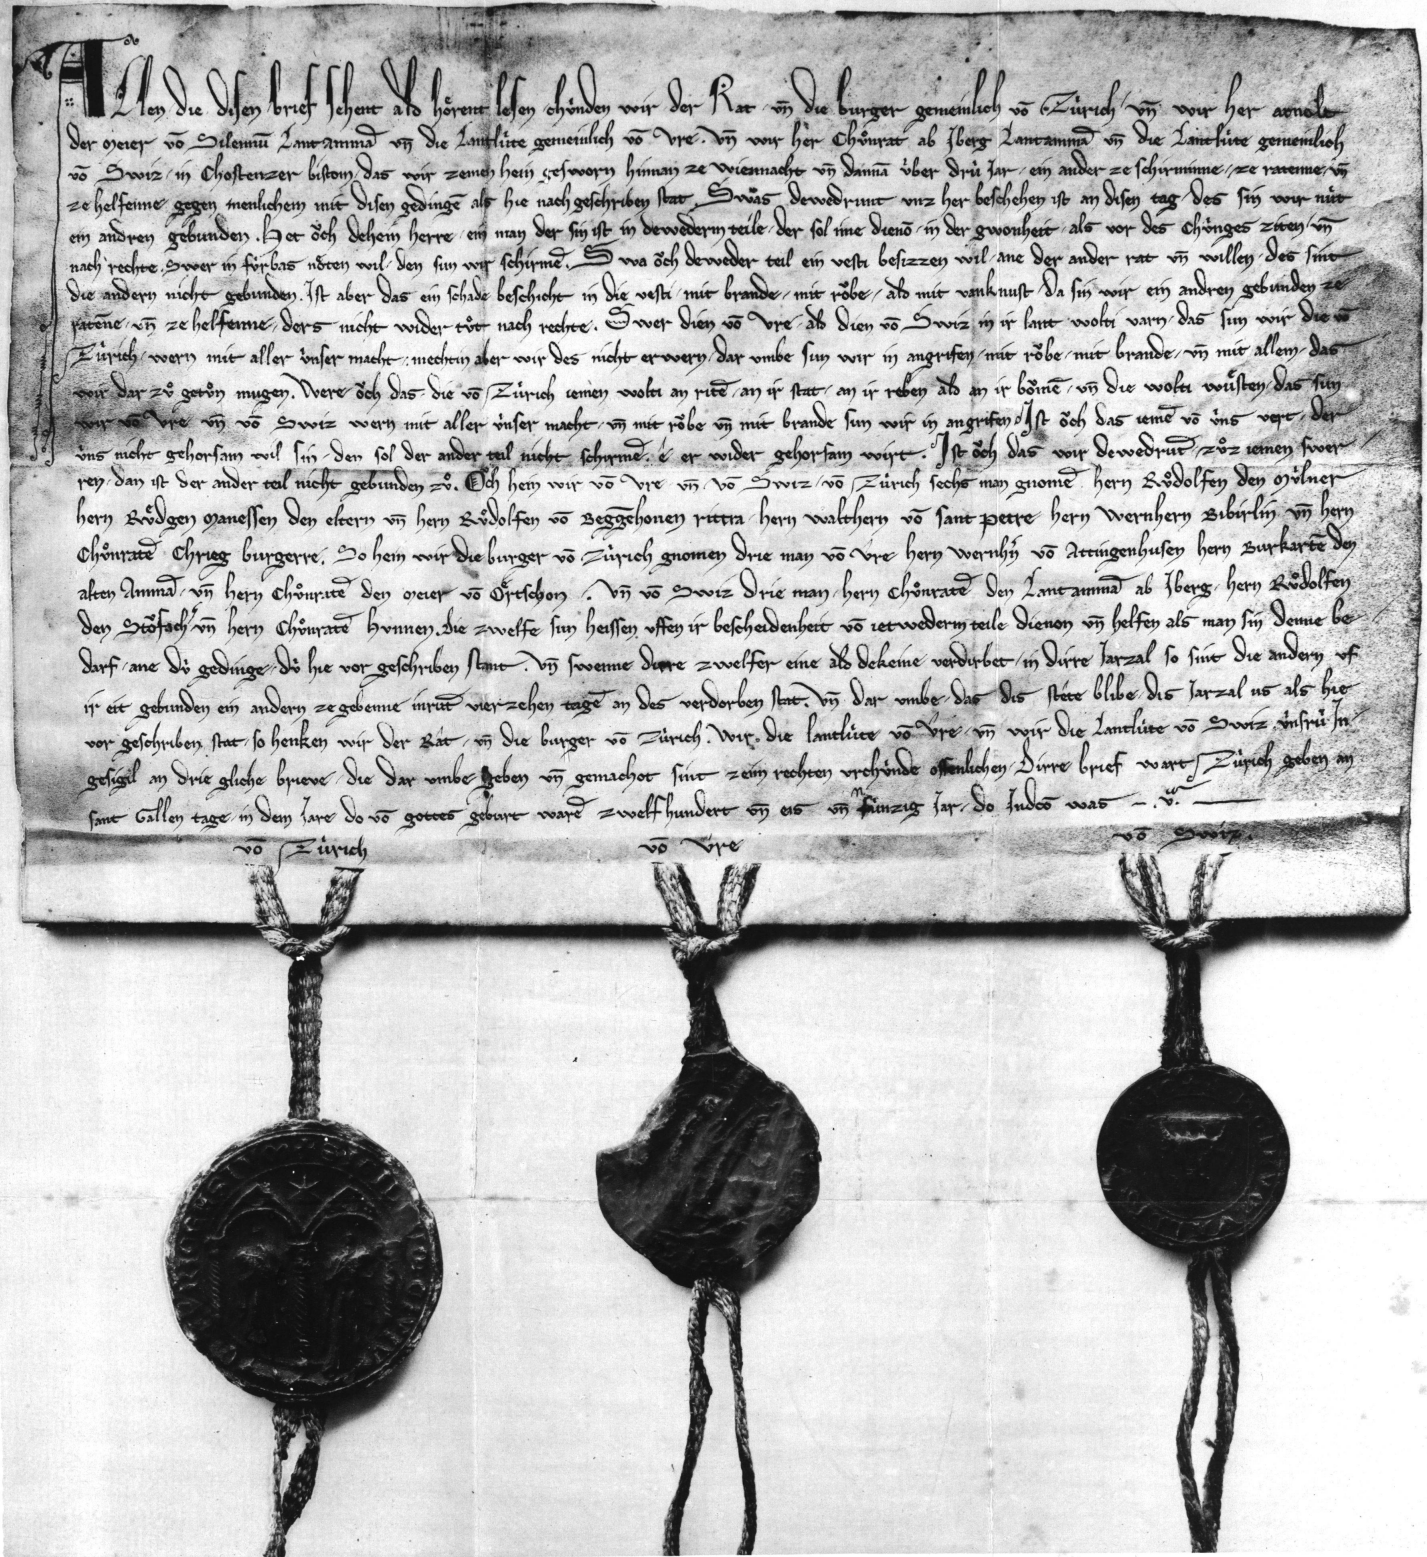 Allen die disen brief sehent ald ho̍rent lesen chu̍nden wir der Rat vn̄ die burger gemeinlich vō Zu̍rich vn̄ wir her arnolt
der meier vō Silennū Lantammā vn̄ die Lantlu̍te gemeinlich vō Vre. vn̄ wir her Chůnrat ab Iberg Lantammā vn̄ die Lantlu̍te gemeinlich
vō Swiz in Chostenzer bistom das wir zemen hein gesworn hinnan ze wiennacht vn̄ dannā u̍ber dru̍ Jar ein ander ze schirmine ze ratenne vn̄
ze helfenne gegen menlichem mit disen gedingē als hie nach geschriben stat. Swas dewedrunt vnz her beschehen ist an disen tag des sin wir nu̍t
ein andren gebunden. Het ȯch dehein herre ein man der sin ist in dewederm teile der sol ime dienō in der gwonheit als vor des Chu̍nges ziten vn̄
nach rechte. Swer in fu̍rbas nȯten wil den sun wir schirmē. Swa ȯch deweder teil ein vesti besizzen wil ane der ander rat vn̄ willen des sint
die andern nicht gebunden. Ist aber das ein schade beschicht in die vesti mit brande mit rȯbe ald mit vanknust da sin wir ein andren gebunden ze
ratēne vn̄ ze helfenne ders nicht wider tůt nach rechte. Swer dien vō Vre ald dien vō Swiz in ir lant wolti varn das sun wir die vō
Zu̍rich wern mit aller u̍nser macht mechtin aber wir des nicht erwern dar vmbe sun wir in angrifen mit rȯbe mit brande vn̄ mit allem das
wir dar zů getůn mugen. Were ȯch das die vō Zu̍rich iemen wolti an ritē an ir stat an ir reben ald an ir bȯmē vn̄ die wolti wůsten das sun
wir vō Vre vn̄ vō Swiz wern mit aller u̍nser macht vn̄ mit rȯbe vn̄ mit brande sun wir in angrifen. Ist ȯch das iemē vō u̍ns vert der
u̍ns nicht gehorsam wil sin den sol der ander teil nicht schirmē é er wider gehorsam wirt. Ist ȯch das wir dewedrūt zůz iemen swer
ren dan ist der ander teil nicht gebunden zů. Ȯch hein wir vō Vre vn̄ vō Swiz vō Zu̍rich sechs man gnomē hern Růdolfen den Mu̍lner
hern Růdgen Manessen den eltern vn̄ hern Růdolfen vō Beggēhouen rittra hern walthern vō sant petre hern Wernhern Bibirlin vn̄ hern
Chůnratē Chrieg burgerre. So hein wir die burger vō Zu̍rich gnomen drie man vō Vre hern wernhn̄ vō Attingenhusen hern Burkartē den
alten Ammā vn̄ hern Chůnratē den meier vō Örtschon. Vn̄ vō Swiz drie man hern Chůnratē den Lantammā ab Iberg hern Růdolfen
den Stȯfacher vn̄ hern Chůnratē Hunnen. die zwelfe sun heissen vffen ir bescheidenheit vō ietwederm teile dienon vn̄ helfen als man sin denne be
darf ane du̍ gedinge du̍ hie vor geschriben stant. Vn̄ swenne dirre zwelfer eine ald dekeine verdirbet in dirre Jarzal so sint die andern vf
ir eit gebunden ein andern ze gebenne inrūt vierzehen tagē an des verdorben stat. Vn̄ dar vmbe das dis stéte blibe dis Jarzal us als hie
vor geschriben stat so henken wir der Rat vn̄ die burger vō Zu̍rich. wir die lantlu̍te vō Vre vn̄ wir die Lantlu̍te vō Swiz u̍nsru̍ In
gesigil an drie gliche brieve die dar vmbe geben vn̄ gemachot sint zeim rechten vrchu̍nde offenlichen. Dirre brief wart Zu̍rich geben an
sant Gallen tage in dem Jare do vō gottes geburt warē zwelfhundert vn̄ eis vn̄ nu̍nzig Jar do Indcō was .v.
vō Zu̍rich vō Vre vō Swiz.